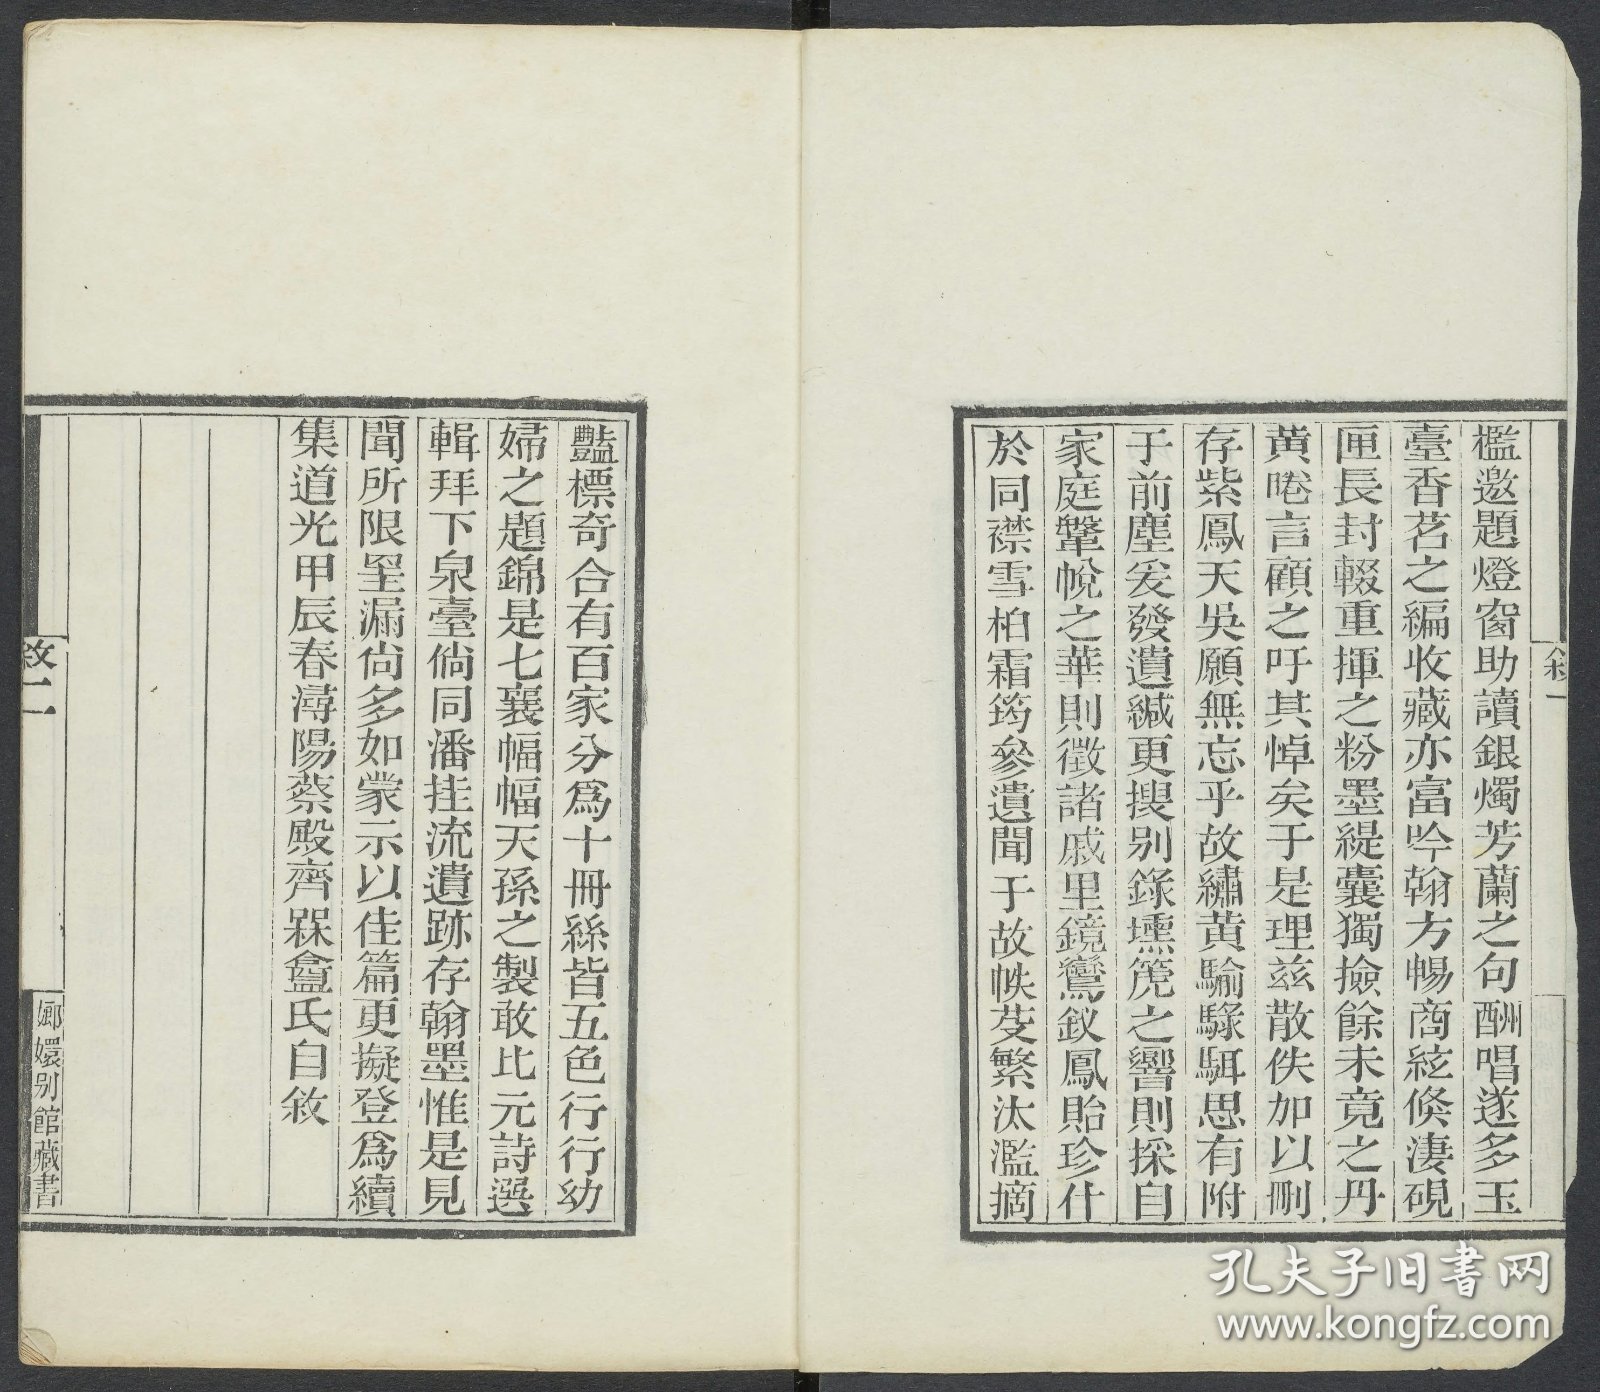 檻邀題燈窗助讀銀燭芳蘭之句酬唱遂多玉
臺香茗之編收藏亦富吟翰方暢商絃倏淒硯
匣長封輟重揮之粉墨緹囊獨撿餘未竟之丹
黃睠言顧之吁其悼矣于是理兹散佚加以刪
存紫鳳天吳願無忘乎故繡黃騟騄駬思有附
于前塵爰發遺緘更搜別錄壎箎之響則採自
家庭鞶帨之華則徵諸戚里鏡鸞釵鳳貽珍什
於同襟雪柏霜筠參遺聞于故帙芟繁汰濫摘
敘一
豔標奇合有百家分爲十冊絲皆五色行行幼
婦之題錦是七襄幅幅天孫之製敢比元詩選
輯拜下泉臺倘同潘挂流遺跡存翰墨惟是見
聞所限罣漏尙多如蒙示以佳篇更擬登爲續
集道光甲辰春潯陽蔡殿齊槑盦氏自敘
敘二
嫏嬛別館藏書
孔夫子旧书网
www.kongfz.com